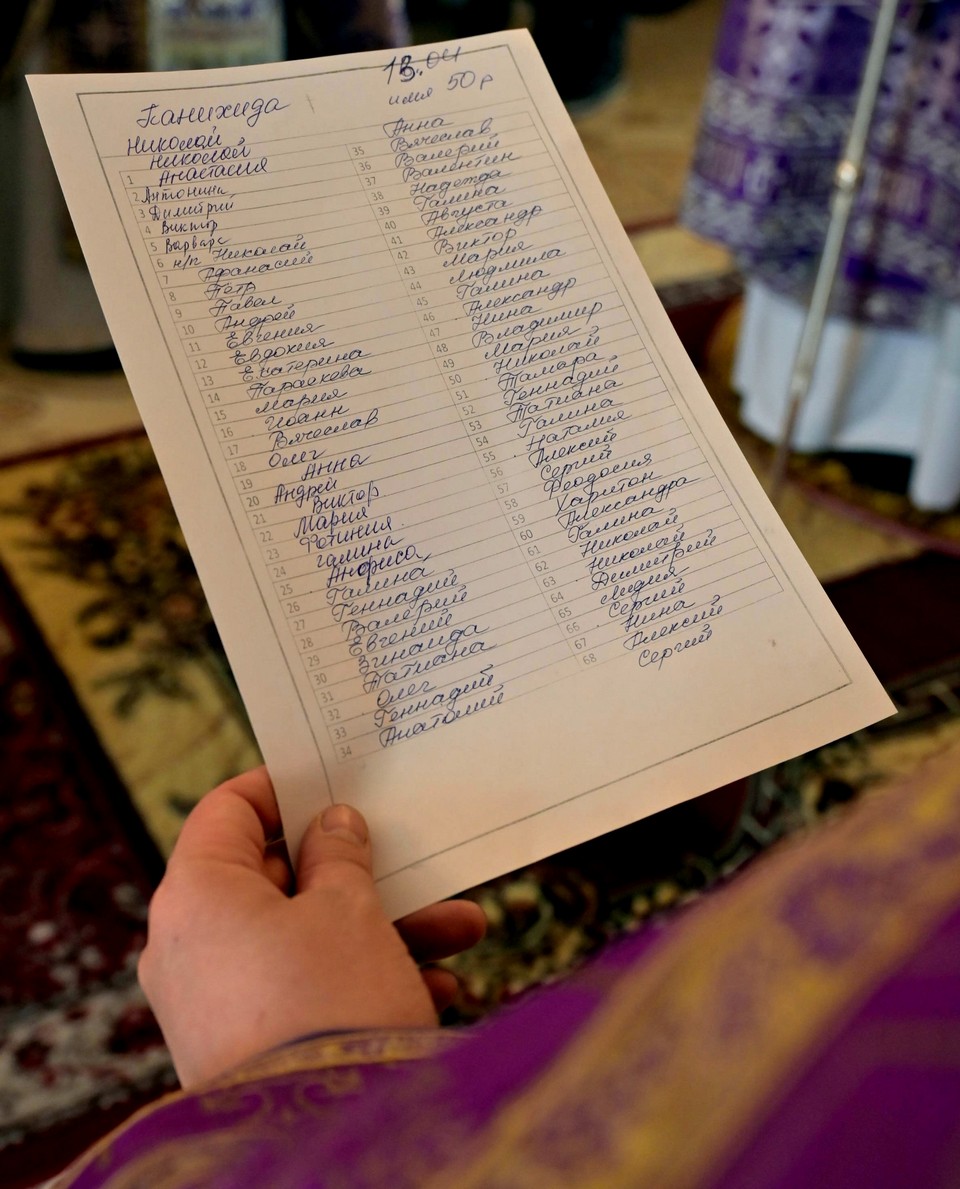 Панихида
13.04
имя 50 р
Николай
Николай
1 Анастасия
2 Антонина
3 Димитрий
4 Виктор
5 Варвара
6 н/п Николай
7 Афанасий
8 Петр
9 Павел
10 Андрей
11 Евгения
12 Евдокия
13 Екатерина
14 Параскева
15 Мария
16 Иоанн
17 Вячеслав
18 Олег
19 Анна
20 Андрей
21 Виктор
22 Мария
23 Фотиния
24 галина
25 Анфиса
26 Галина
27 Геннадий
28 Валерий
29 Евгений
30 Зинаида
31 Татиана
32 Олег
33 Геннадий
34 Анатолий
Анна
35 Вячеслав
36 Валерий
37 Валентин
38 Надежда
39 Галина
40 Августа
41 Александр
42 Виктор
43 Мария
44 Людмила
45 Галина
46 Александр
47 Нина
48 Владимир
49 Мария
50 Николай
51 Тамара
52 Геннадий
53 Татиана
54 Галина
55 Наталия
56 Алексий
57 Сергий
58 Феодосия
59 Харитон
60 Александра
61 Галина
62 Николай
63 Николай
64 Димитрий
65 Лидия
66 Сергий
67 Нина
68 Алексий
Сергий